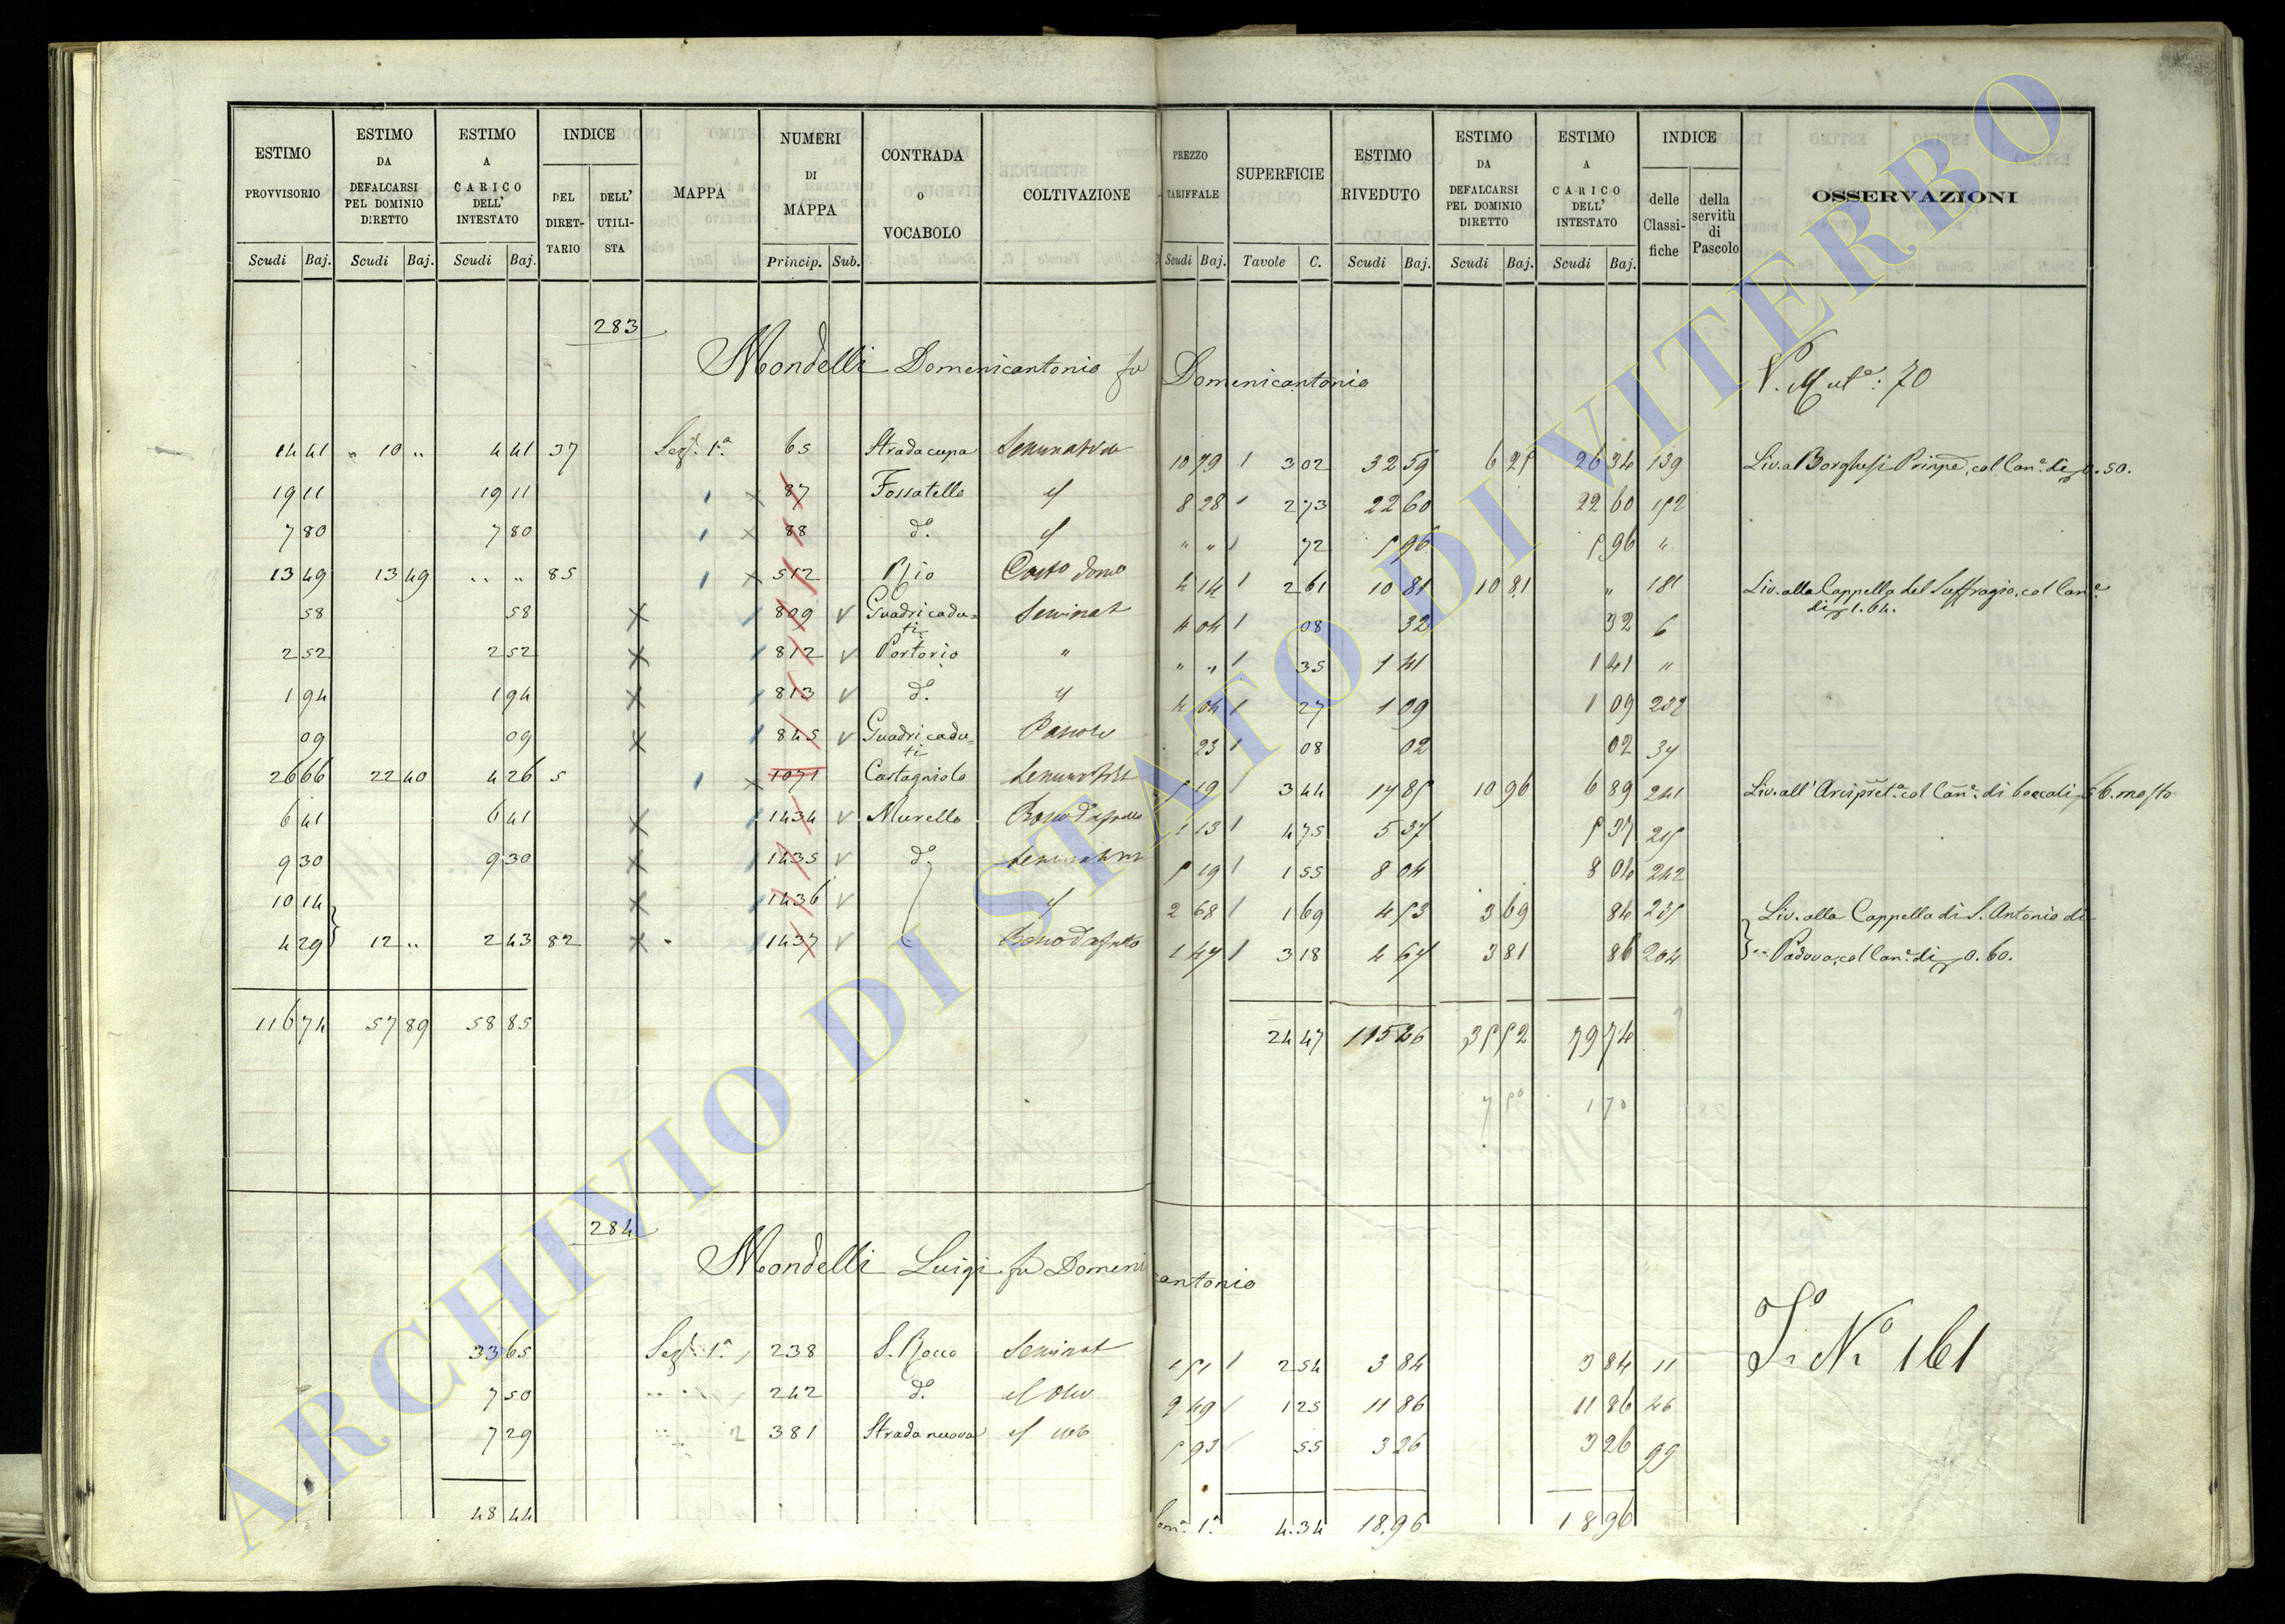 ESTIMO PROVVISORIO Scudi Baj. ESTIMO DA DEFALCARSI PEL DOMINIO DIRETTO Scudi Baj. ESTIMO A CARICO DELL' INTESTATO Scudi Baj. INDICE DEL DIRETTARIO DELL' UTILISTA MAPPA NUMERI DI MAPPA Princip. Sub. CONTRADA o VOCABOLO COLTIVAZIONE PREZZO TARIFFALE Scudi Baj. SUPERFICIE Tavole C. ESTIMO RIVEDUTO Scudi Baj. ESTIMO DA DEFALCARSI PEL DOMINIO DIRETTO Scudi Baj. ESTIMO A CARICO DELL' INTESTATO Scudi Baj. INDICE delle Classifiche della servitù di Pascolo OSSERVAZIONI
283
Mondelli Domenicantonio fu Domenicantonio V. Mut.e: 70
14 41 " 10 " 4 41 37 Sez. 1.a 65 Strada cupa 10 79 3 02 32 59 6 25 26 34 139 Liv. a Borghesi Prinpe, col Can.e di 0.50.
19 11 19 11 87 Fossatello " 8 28 2 73 22 60 22 60 152
7 80 7 80 88 d.o " " " 72 5 96 5 96 "
13 49 13 49 " " 85 512 Rio 4 14 2 61 10 81 10 81 " 181 Liv. alla Cappella del Suffragio, col Can.e di 1.64.
58 58 809 Guadricaduti Seminat 4 04 08 32 32 6
2 52 2 52 812 Portorio " " " 35 1 41 1 41 "
1 94 1 94 813 d.o " 4 04 27 1 09 1 09 232
09 09 845 Guadricaduti 23 08 02 02 34
26 66 22 40 4 26 5 1071 Castagnolo 5 19 3 44 17 85 10 96 6 89 241 Liv. all' col Can.e di boccali 56. mosto
6 41 6 41 1434 Murello 1 13 4 75 5 37 5 37 215
9 30 9 30 1435 d.o 5 19 1 55 8 04 8 04 242
10 14 1436 " 2 68 1 69 4 53 3 69 84 235 Liv. alla Cappella di S. Antonio di
4 29 12 " 2 43 82 1437 1 47 3 18 4 67 3 81 86 204 Padova, col Can.e di 0.60.
116 74 57 89 58 85 24 47 115 26 35 52 79 74
284
Mondelli Luigi fu Domenicantonio
33 65 Sez. 1.a 238 S. Rocco Seminat 1 51 2 54 3 84 3 84 11 N.o 161
7 50 242 d.o " Oliv 9 49 1 25 11 86 11 86 46
7 29 2 381 Strada nuova " 5 93 55 3 26 3 26 99
48 44 4.34 18.96 18 96
ARCHIVIO DI STATO DI VITERBO